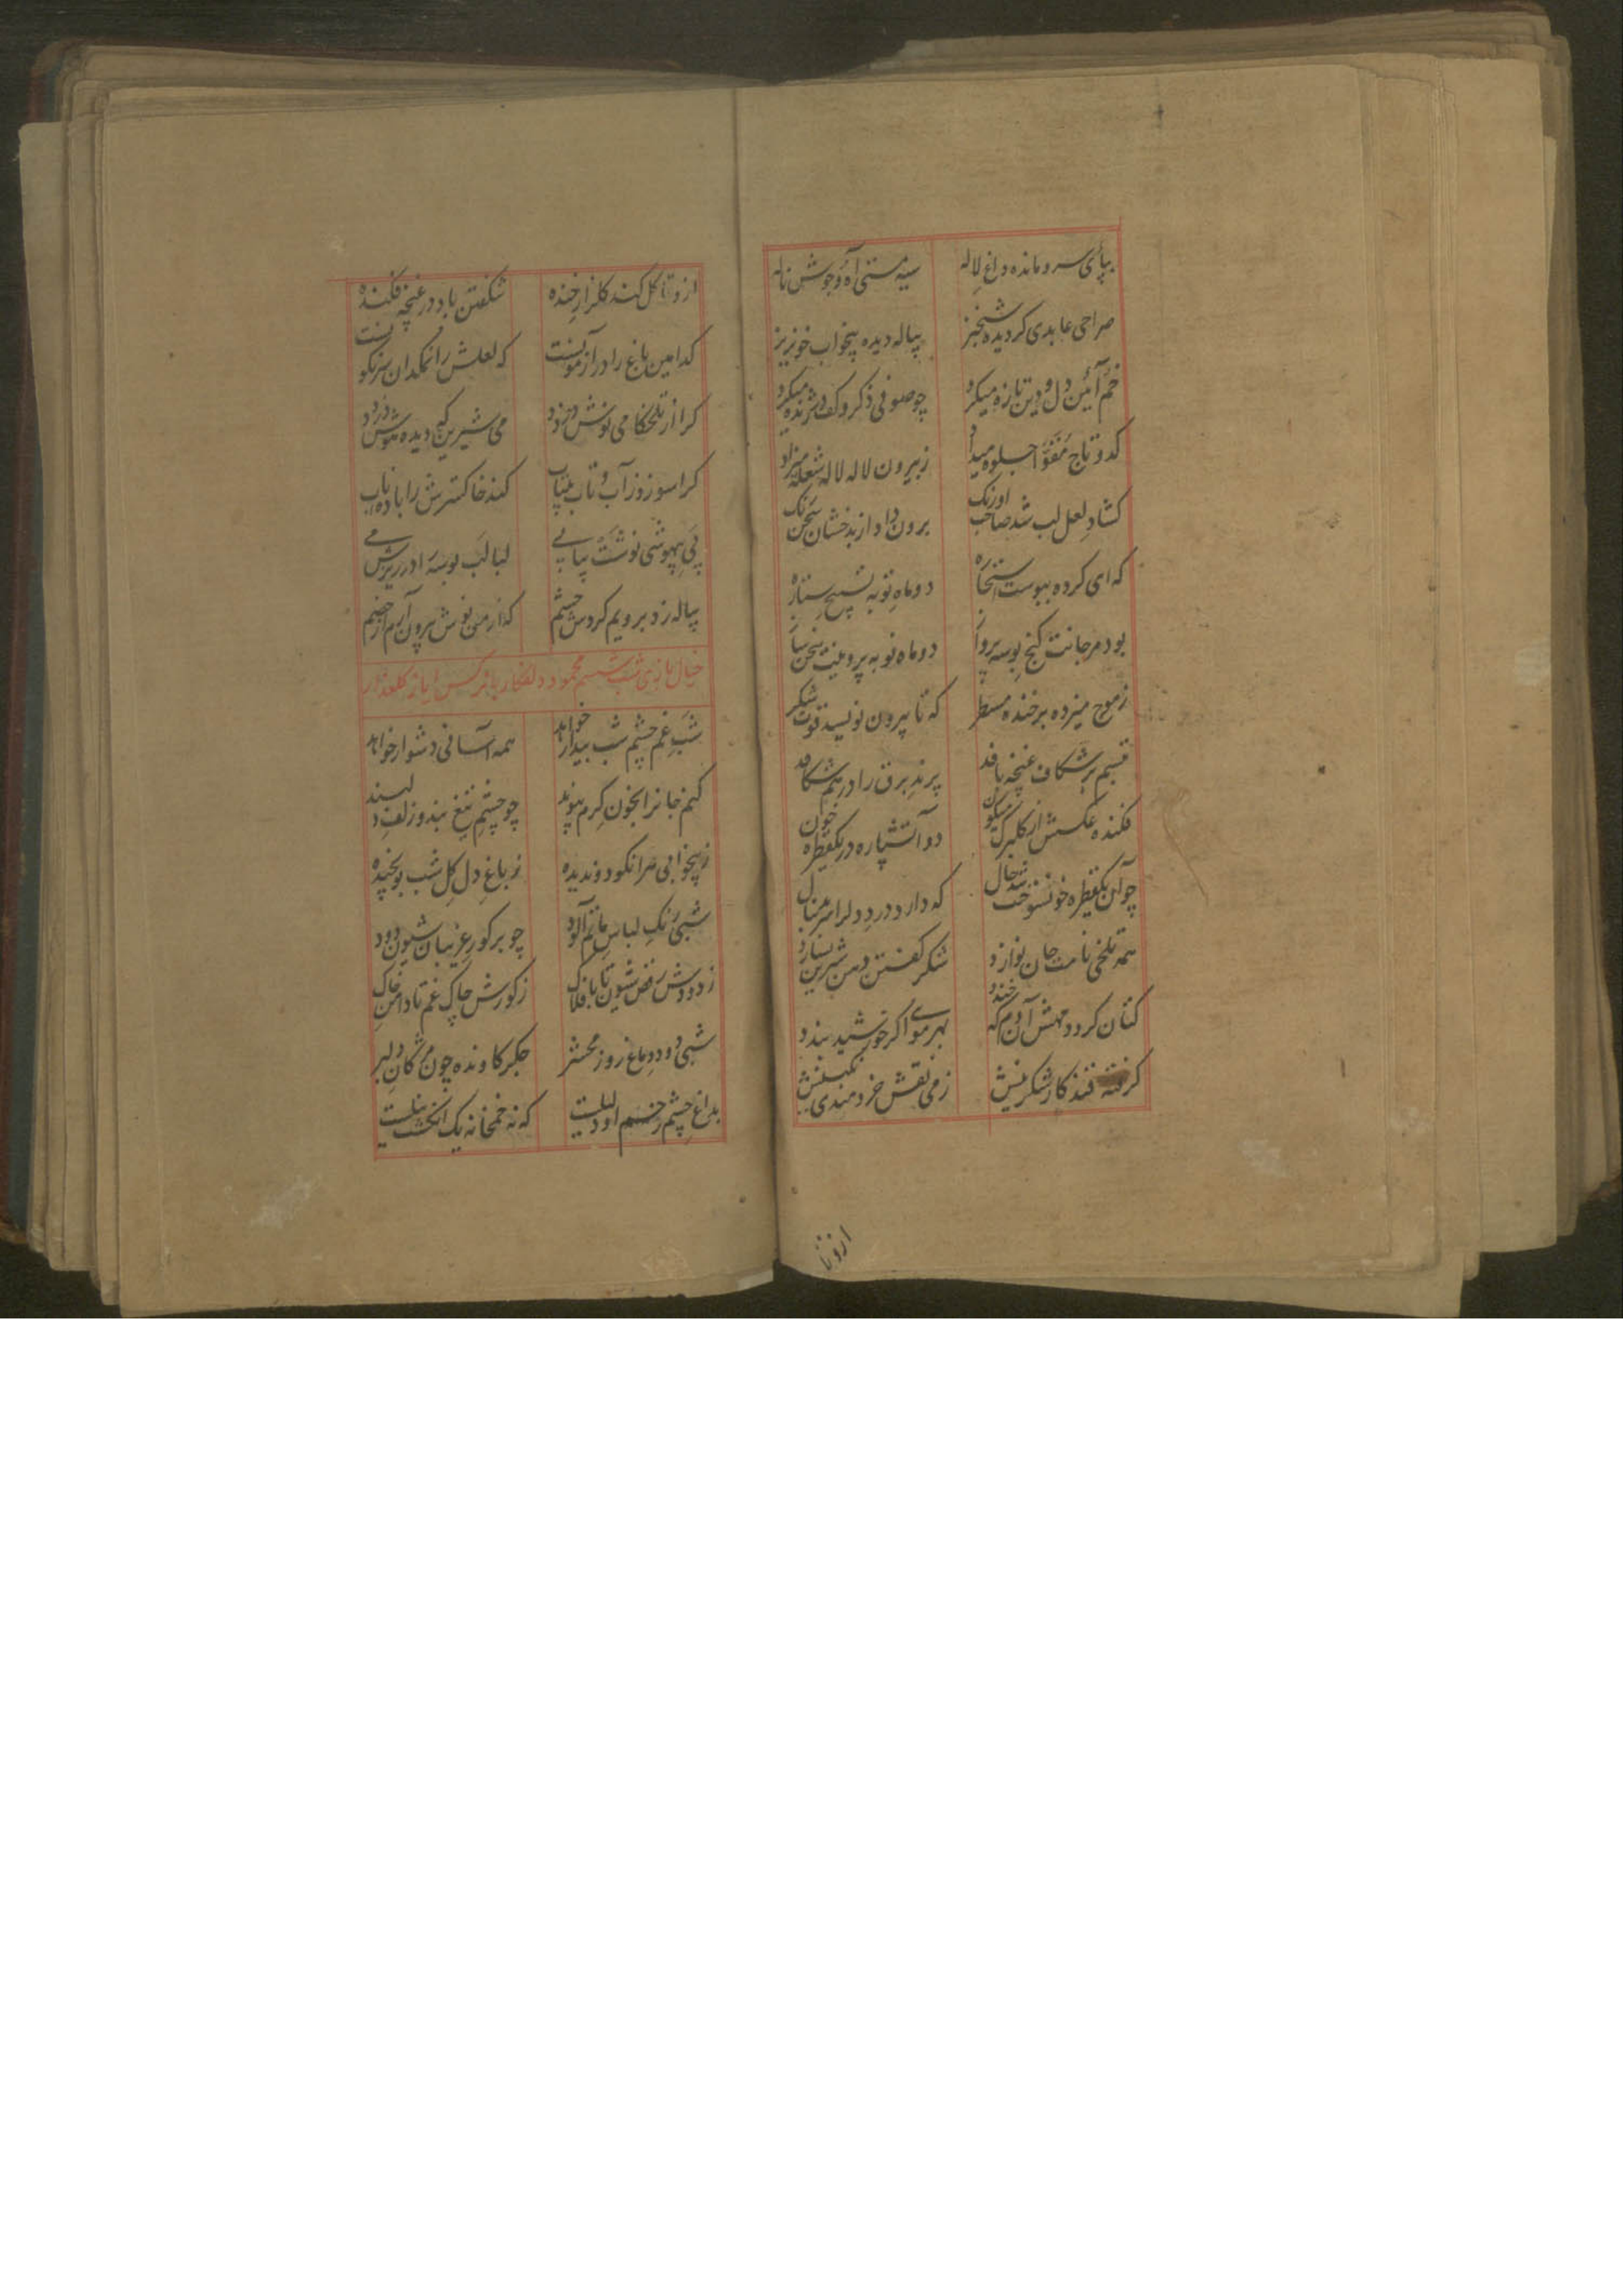 بپای سرو مانده داغ لاله سیه مستی آه و جوش ناله
صراحی عابدی کردیده شبخیز پیاله دیده بیخواب خونریز
خم آئین دل و دین تازه میکرد چو صوفی ذکر و کف میکرد
کدو تاج جلوه میداد ز بیرون لاله لاله شعله میزاد
کشاد لعل لب شد صاحب اورنک برون داد از بدخشان سخن نک
که ای کرده دو ماه نو به تسبیح ستاره
بود مرجانت کنج بوسه پرواز دو ماه نو به پروینت سخن ساز
ز موج میزده بر خنده مسطر که تا بیرون نویسد قوت شکر
تبسم بر شکاف غنچه بافد پرند برق را در هم شکافد
فکنده عکسش از کلبرک میکون دو آتشپاره در یکقطره خون
چو آن یکقطره خونت شد حال که دارد درد دلرا
همه تلخی نامت جان نوازد شکر کفتن دهن شیرین بسازد
کتان کردد مهش آن دم که خندد بهر موی اکر خورشید بندد
کرفته قند کار شکرینش ز می نقش خردمندی نکینش
ازو تا
ازو تا کل کند کلزار خنده شکفتن باد در غنچه فکنده
کدامین باغ را در آزمونست که لعلش را نمکدان سرنکونست
کرا از تلخکامی نوش درزد می شیرین که دیده موش دزدد
کرا سوزد ز آب و تاب بیتاب کند خاکسترش را باده ناب
پی بیهوشی نوشت پیاپی لبالب بوسه در ریزش می
پیاله زد برویم کردش چشم که از می نوش بیرون آرم از خشم
خیال بازی شب ششم محمود دلفکار با نرکس ایاز کلعذار
شب غم چشم شب بیدار خواهد همه آسانی دشوار خواهد
کنم جانرا بخون کرم پیوند چو چشم تیغ بند و زلف دلبند
ز بیخوابی مرا نکوددندیده ز باغ دل کل شب بو نچیده
شبی رنک لباس ماتم آلود چو بر کور غریبان شیون دود
ز دودش رقص شیون تا بافلاک ز کورش چاک غم تا دامن خاک
شبی دود دماغ روز محشر جکر کاونده چون مژکان دلبر
بداغ چشم زخم اودلیلیست که نه خمخانه یک انکشت نیلیست